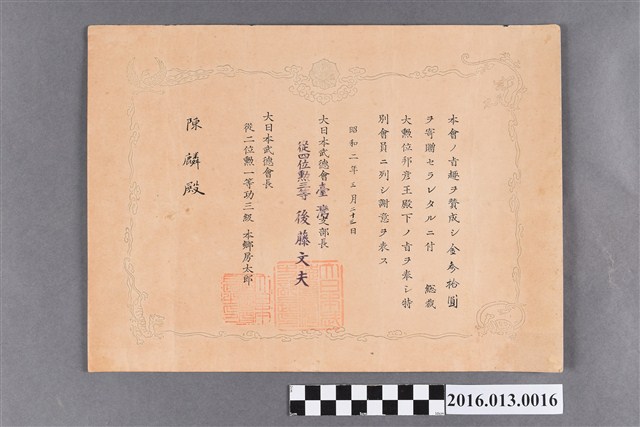 本會ノ旨趣ヲ賛成シ金參拾圓
ヲ寄贈セラレタルニ付 總裁
大勲位邦彦王殿下ノ旨ヲ奉シ特
別會員ニ列シ謝意ヲ表ス
昭和二年五月二十五日
大日本武德會臺灣支部長
從四位勲三等 後藤文夫
大日本武德會長
從二位勲一等功三級 本郷房太郎
陳麟殿
2016.013.0016